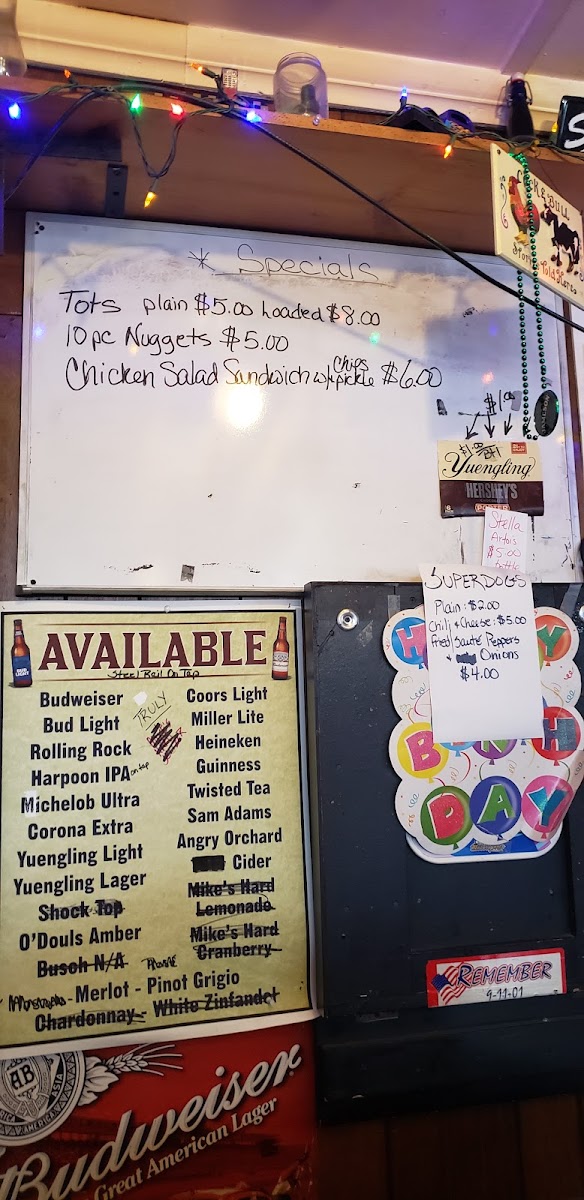 * Specials
Tots plain $5.00 Loaded $8.00
10pc Nuggets $5.00
Chicken Salad Sandwich w/ chips pickle $6.00
$1.00
Yuengling
HERSHEY'S
PORTER
Stella
Artois
$5.00
bottle
SUPERDOGS
Plain: $2.00
Chili & Cheese: $5.00
Fried Sauté Peppers
+ Onions
$4.00
AVAILABLE
Steel Rail On Tap
TRULY
Budweiser
Bud Light
Rolling Rock
Harpoon IPA on tap
Michelob Ultra
Corona Extra
Yuengling Light
Yuengling Lager
Shock Top
O'Douls Amber
Busch N/A
Coors Light
Miller Lite
Heineken
Guinness
Twisted Tea
Sam Adams
Angry Orchard
Cider
Mike's Hard
Lemonade
Mike's Hard
Cranberry
- Merlot - Pinot Grigio
Chardonnay - White Zinfandel
DAY
REMEMBER
9-11-01
AB
Budweiser
Great American Lager